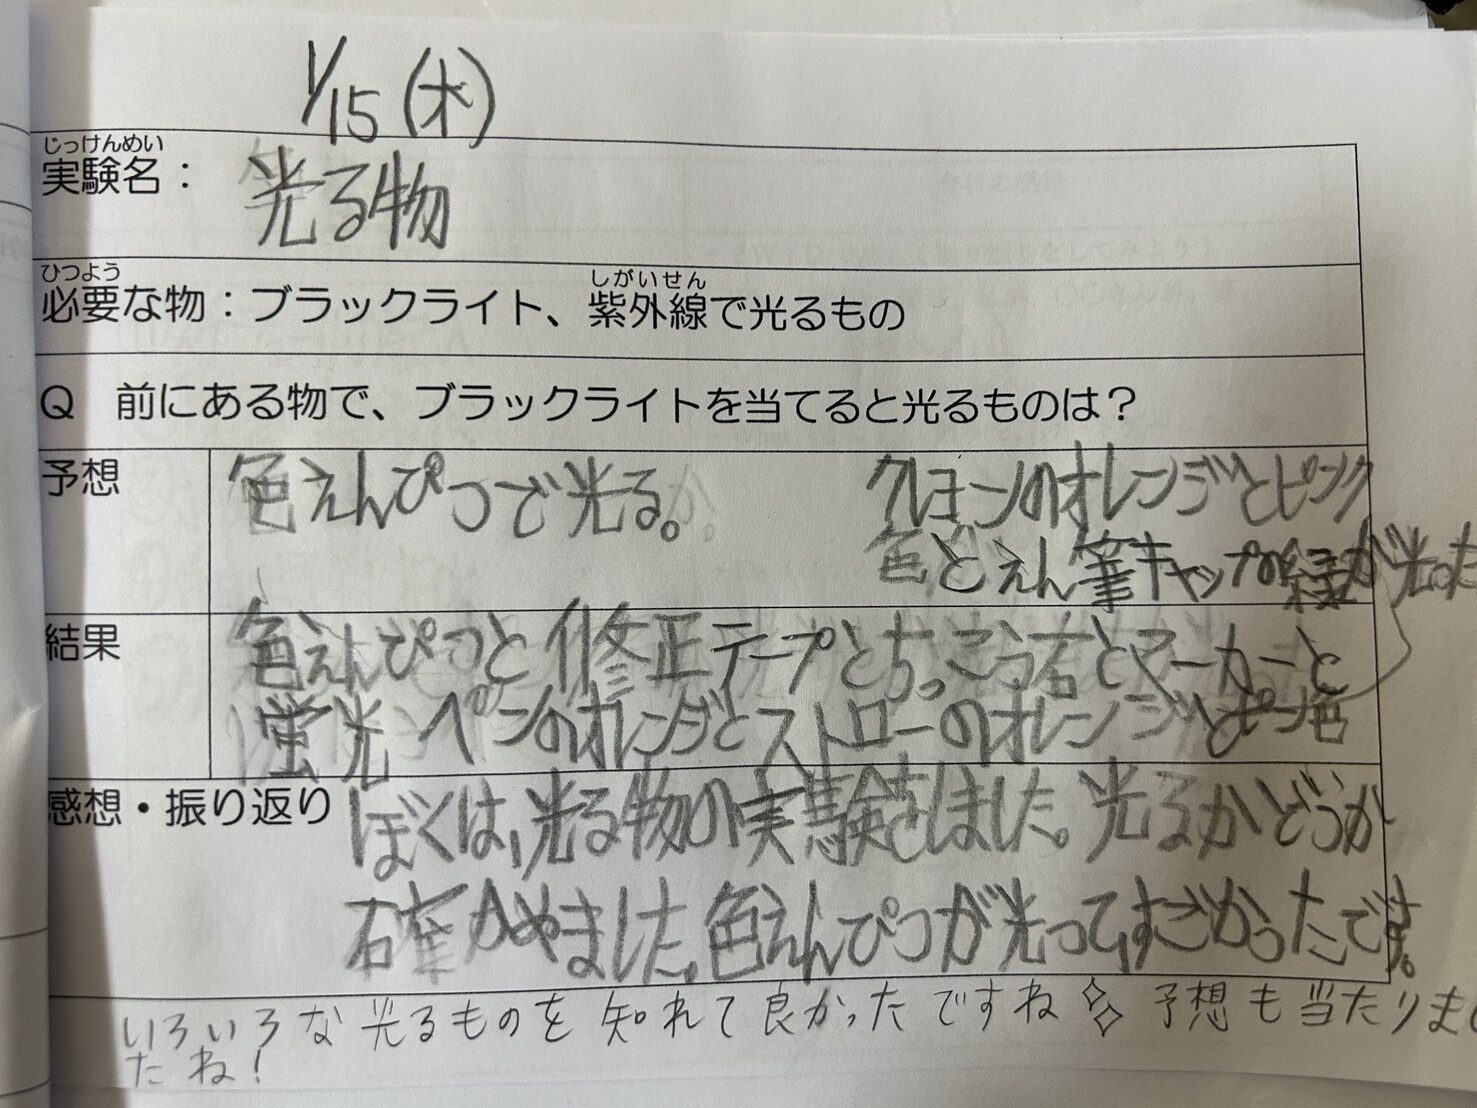 1/15(木)
じっけんめい
実験名：光る物
ひつよう
しがいせん
必要な物：ブラックライト、紫外線で光るもの
Q 前にある物で、ブラックライトを当てると光るものは？
予想 色えんぴつで光る。
クレヨンのオレンジとピンク
色とえん筆キャップの緑が光った
結果 色えんぴつと修正テープとちっこう石とマーカーと
蛍光ペンのオレンジとストローのオレンジとピンク色
感想・振り返り ぼくは、光る物の実験をしました。光るかどうか
確かめました。色えんぴつが光ってすごかったです。
いろいろな光るものを知れて良かったですね 予想も当たりまし
たね！